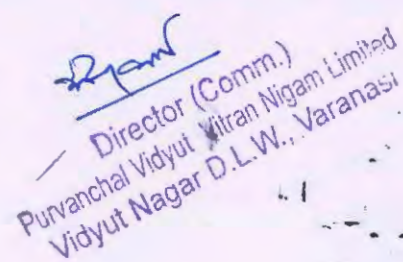 Director (Comm.)
Purvanchal Vidyut Vitran Nigam Limited
Vidyut Nagar D.L.W., Varanasi